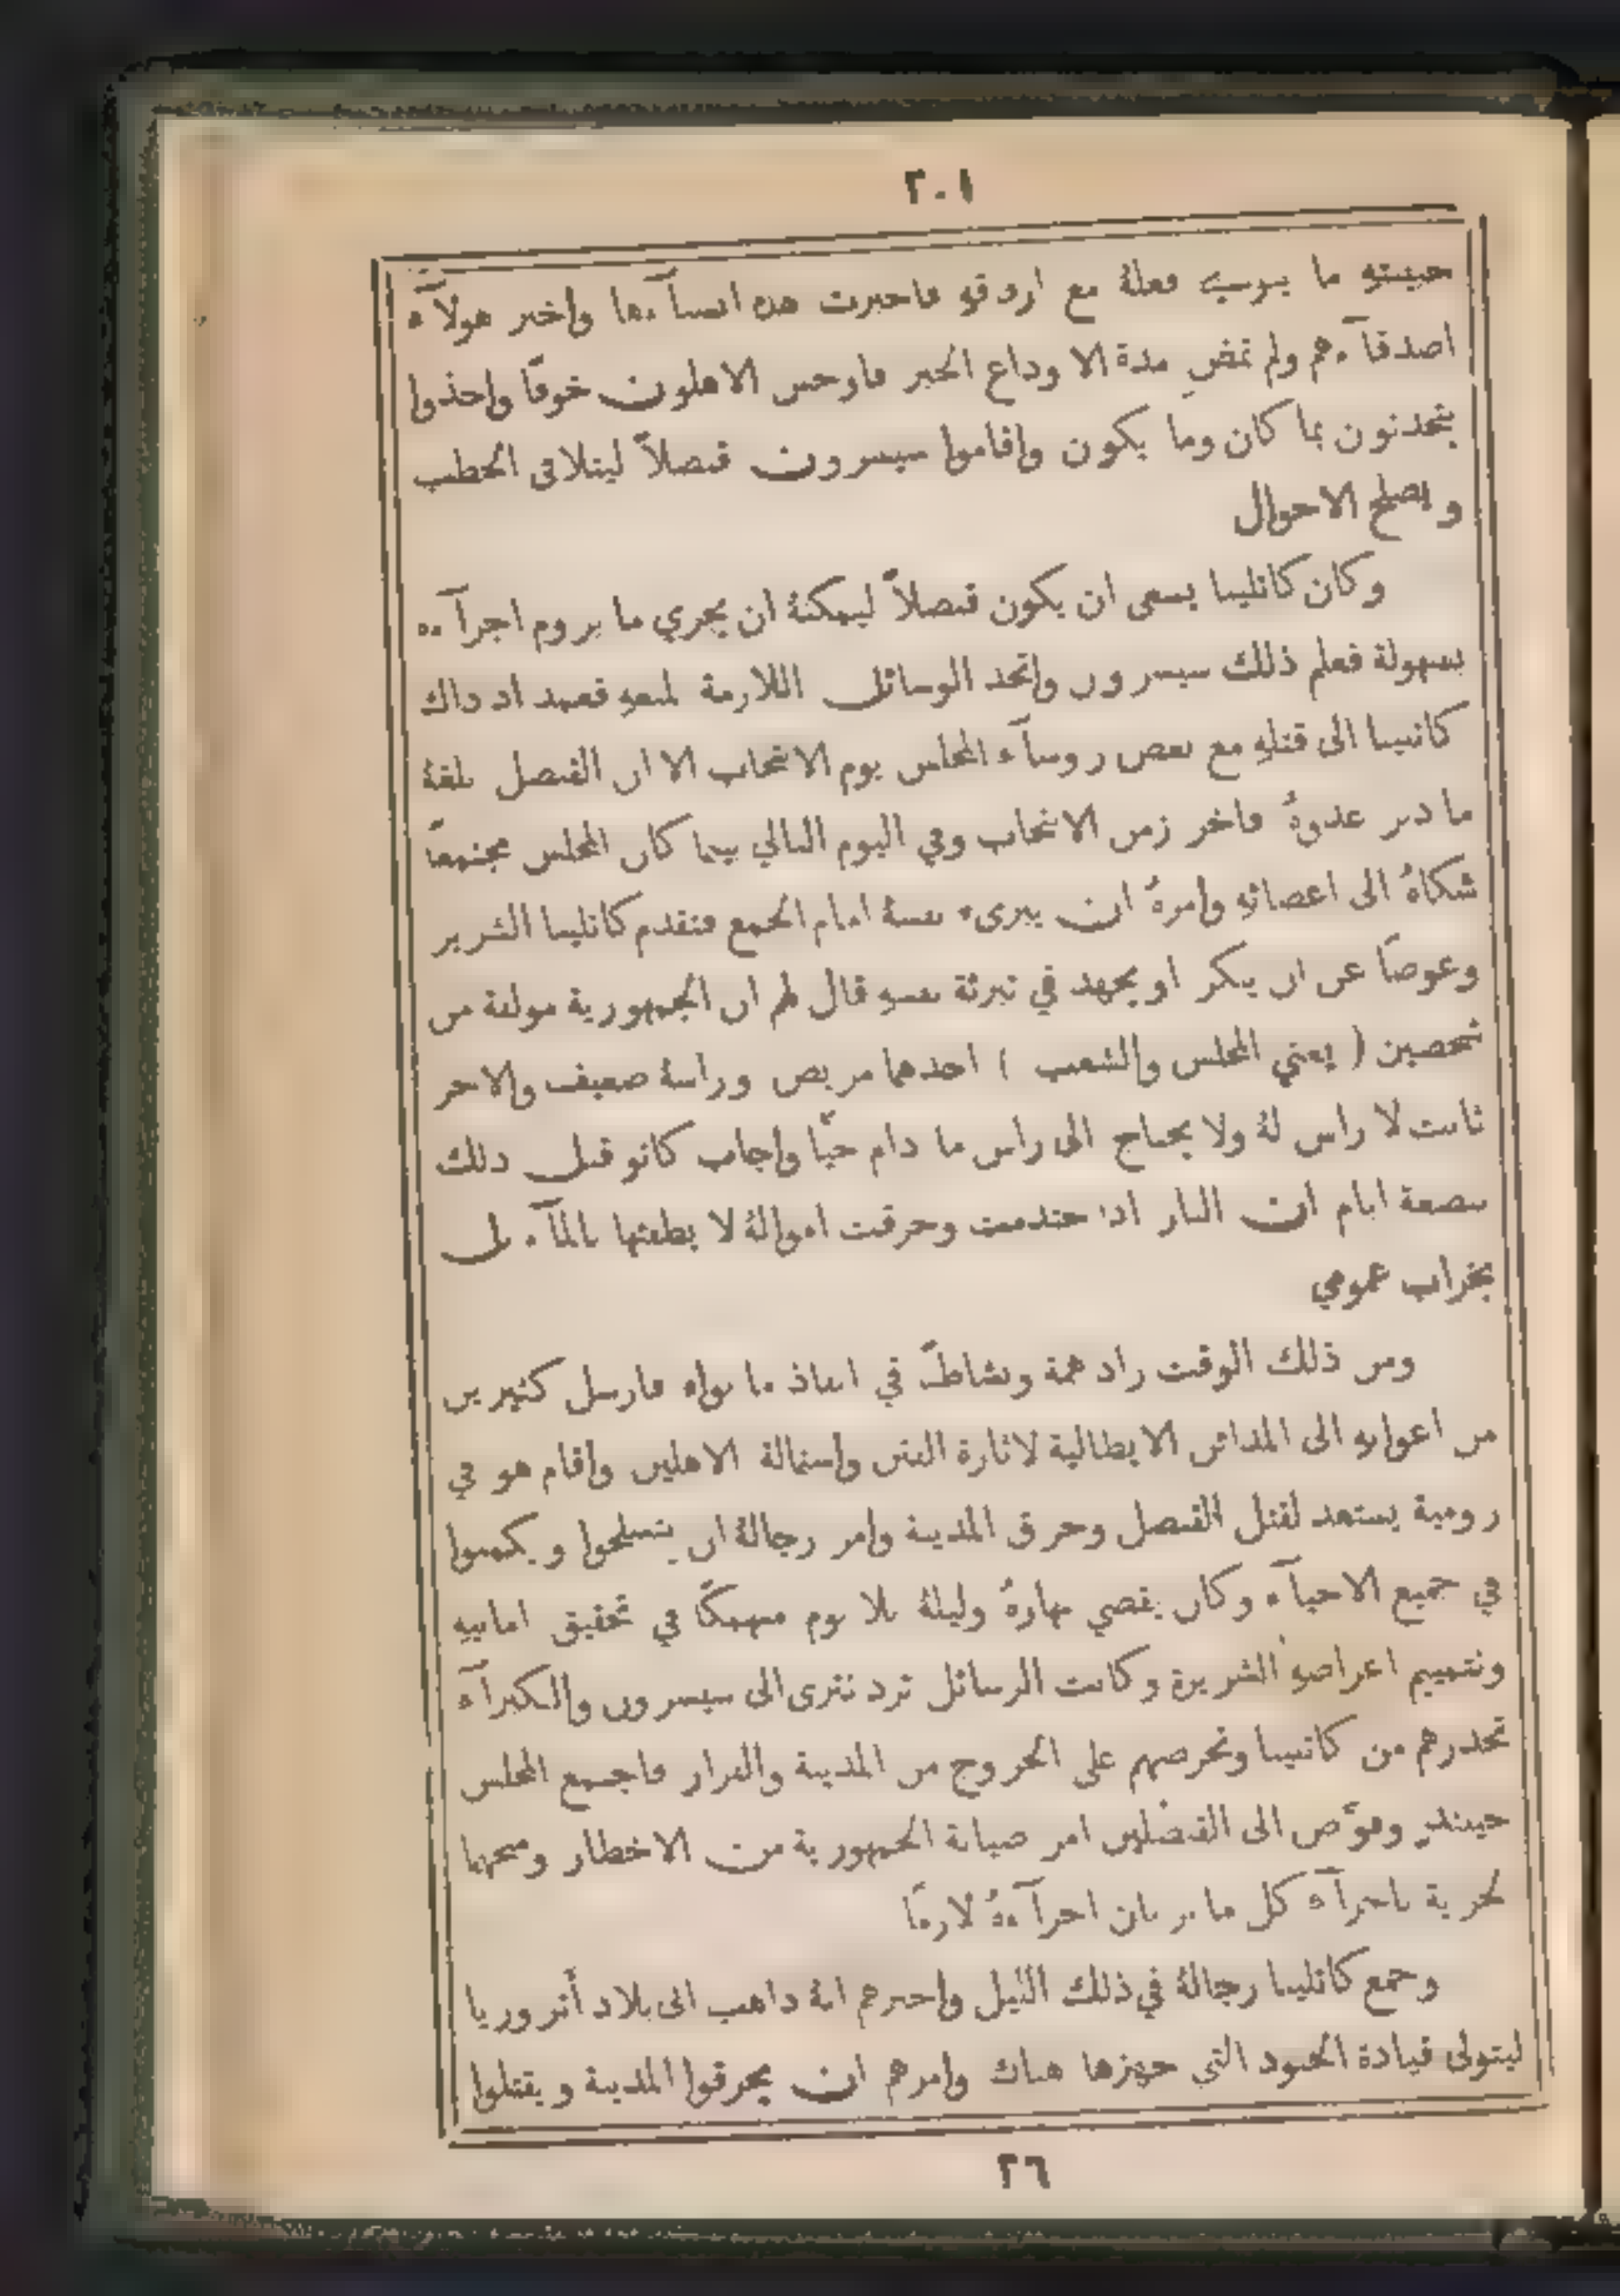 ٢٠١
حبيبته ما ينوي فعلهُ مع ارفاقهِ فاخبرت هذه انسباءها واخبر هولاۤء
اصدقاۤءهم ولم تمضِ مدة الا وذاع الخبر فاوجس الاهلون خوفًا واخذوا
يتحدثون بما كان وما يكون واقاموا سيسرون قنصلاً ليتلافى الخطب
ويصلح الاحوال
وكان كاتلينا يسعى ان يكون قنصلاً ليمكنهُ ان يجري ما يروم اجراۤءه
بسهولة فعلم ذلك سيسرون واتخذ الوسائل اللازمة لمنعهِ فعمد اذ ذاك
كاتلينا الى قتلهِ مع بعض روساۤء المجلس يوم الانتخاب الا ان القنصل بلغهُ
ما دبر عدوهُ فاخر زمن الانتخاب وفي اليوم التالي بينما كان المجلس مجتمعًا
شكاهُ الى اعضائهِ وامرهُ ان يبرىء نفسهُ امام الجمع فتقدم كاتلينا الشرير
وعوضًا عن ان ينكر او يجهد في تبرئة نفسهِ قال لهم ان الجمهورية مولفة من
شخصين ( يعني المجلس والشعب ) احدهما مريض وراسهُ ضعيف والاخر
ثابت لا راس لهُ ولا يحتاج الى راس ما دام حيًّا واجاب كاتو قبل ذلك
ببضعة ايام ان النار اذا احتدمت وحرقت اموالهُ لا يطفئها بالماۤء بل
بخراب عمومي
ومن ذلك الوقت زاد همة ونشاطًا في انفاذ ما نواه فارسل كثيرين
من اعوانهِ الى المدائن الايطالية لاثارة الفتن واستمالة الاهلين واقام هو في
رومية يستعد لقتل القنصل وحرق المدينة وامر رجالهُ ان يتسلحوا ويكمنوا
في جميع الاحياۤء وكان يقضي نهارهُ وليلهُ بلا نوم منهمكًا في تحقيق امانيهِ
وتتميم اغراضهِ الشريرة وكانت الرسائل ترد تترى الى سيسرون والكبراۤء
تحذرهم من كاتلينا وتحرضهم على الخروج من المدينة والفرار فاجتمع المجلس
حينئذٍ وفوَّض الى القنصلين امر صيانة الجمهورية من الاخطار ومنحهما
الحرية باجراۤء كل ما يريان اجراۤءهُ لازمًا
وجمع كاتلينا رجالهُ في ذلك الليل واخبرهم انهُ ذاهب الى بلاد أتروريا
ليتولى قيادة الجنود التي جهزها هناك وامرهم ان يحرقوا المدينة ويقتلوا
٢٦